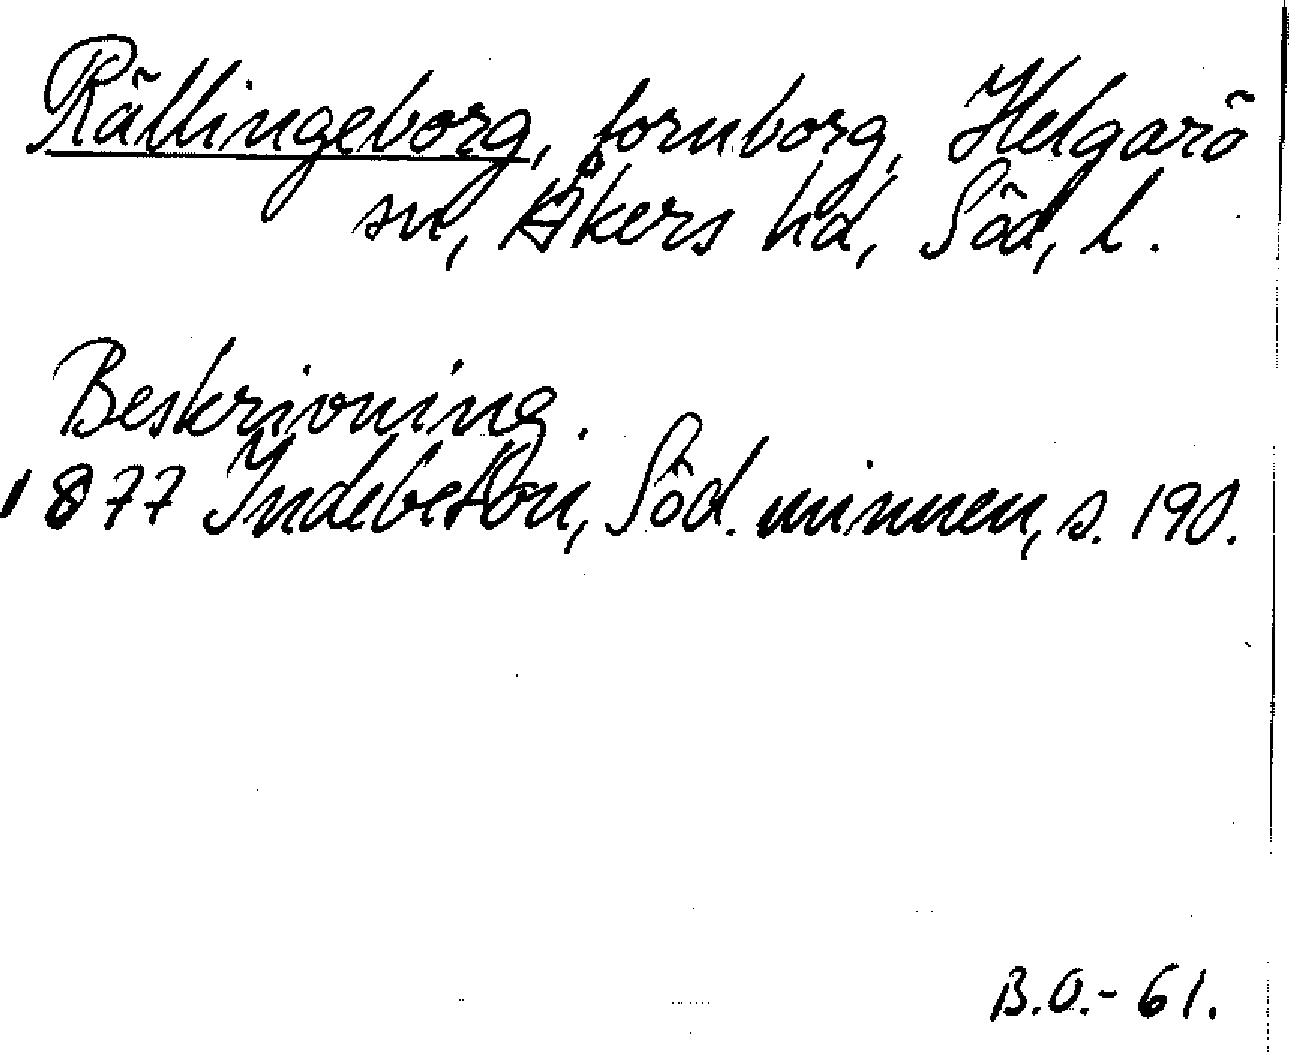 Rällingeborg, fornborg, Helgarö
sn, Åkers hd, Söd, l.
Beskrivning.
1877 Indebetou, Söd. minnen, s. 190.
B.O.-61.